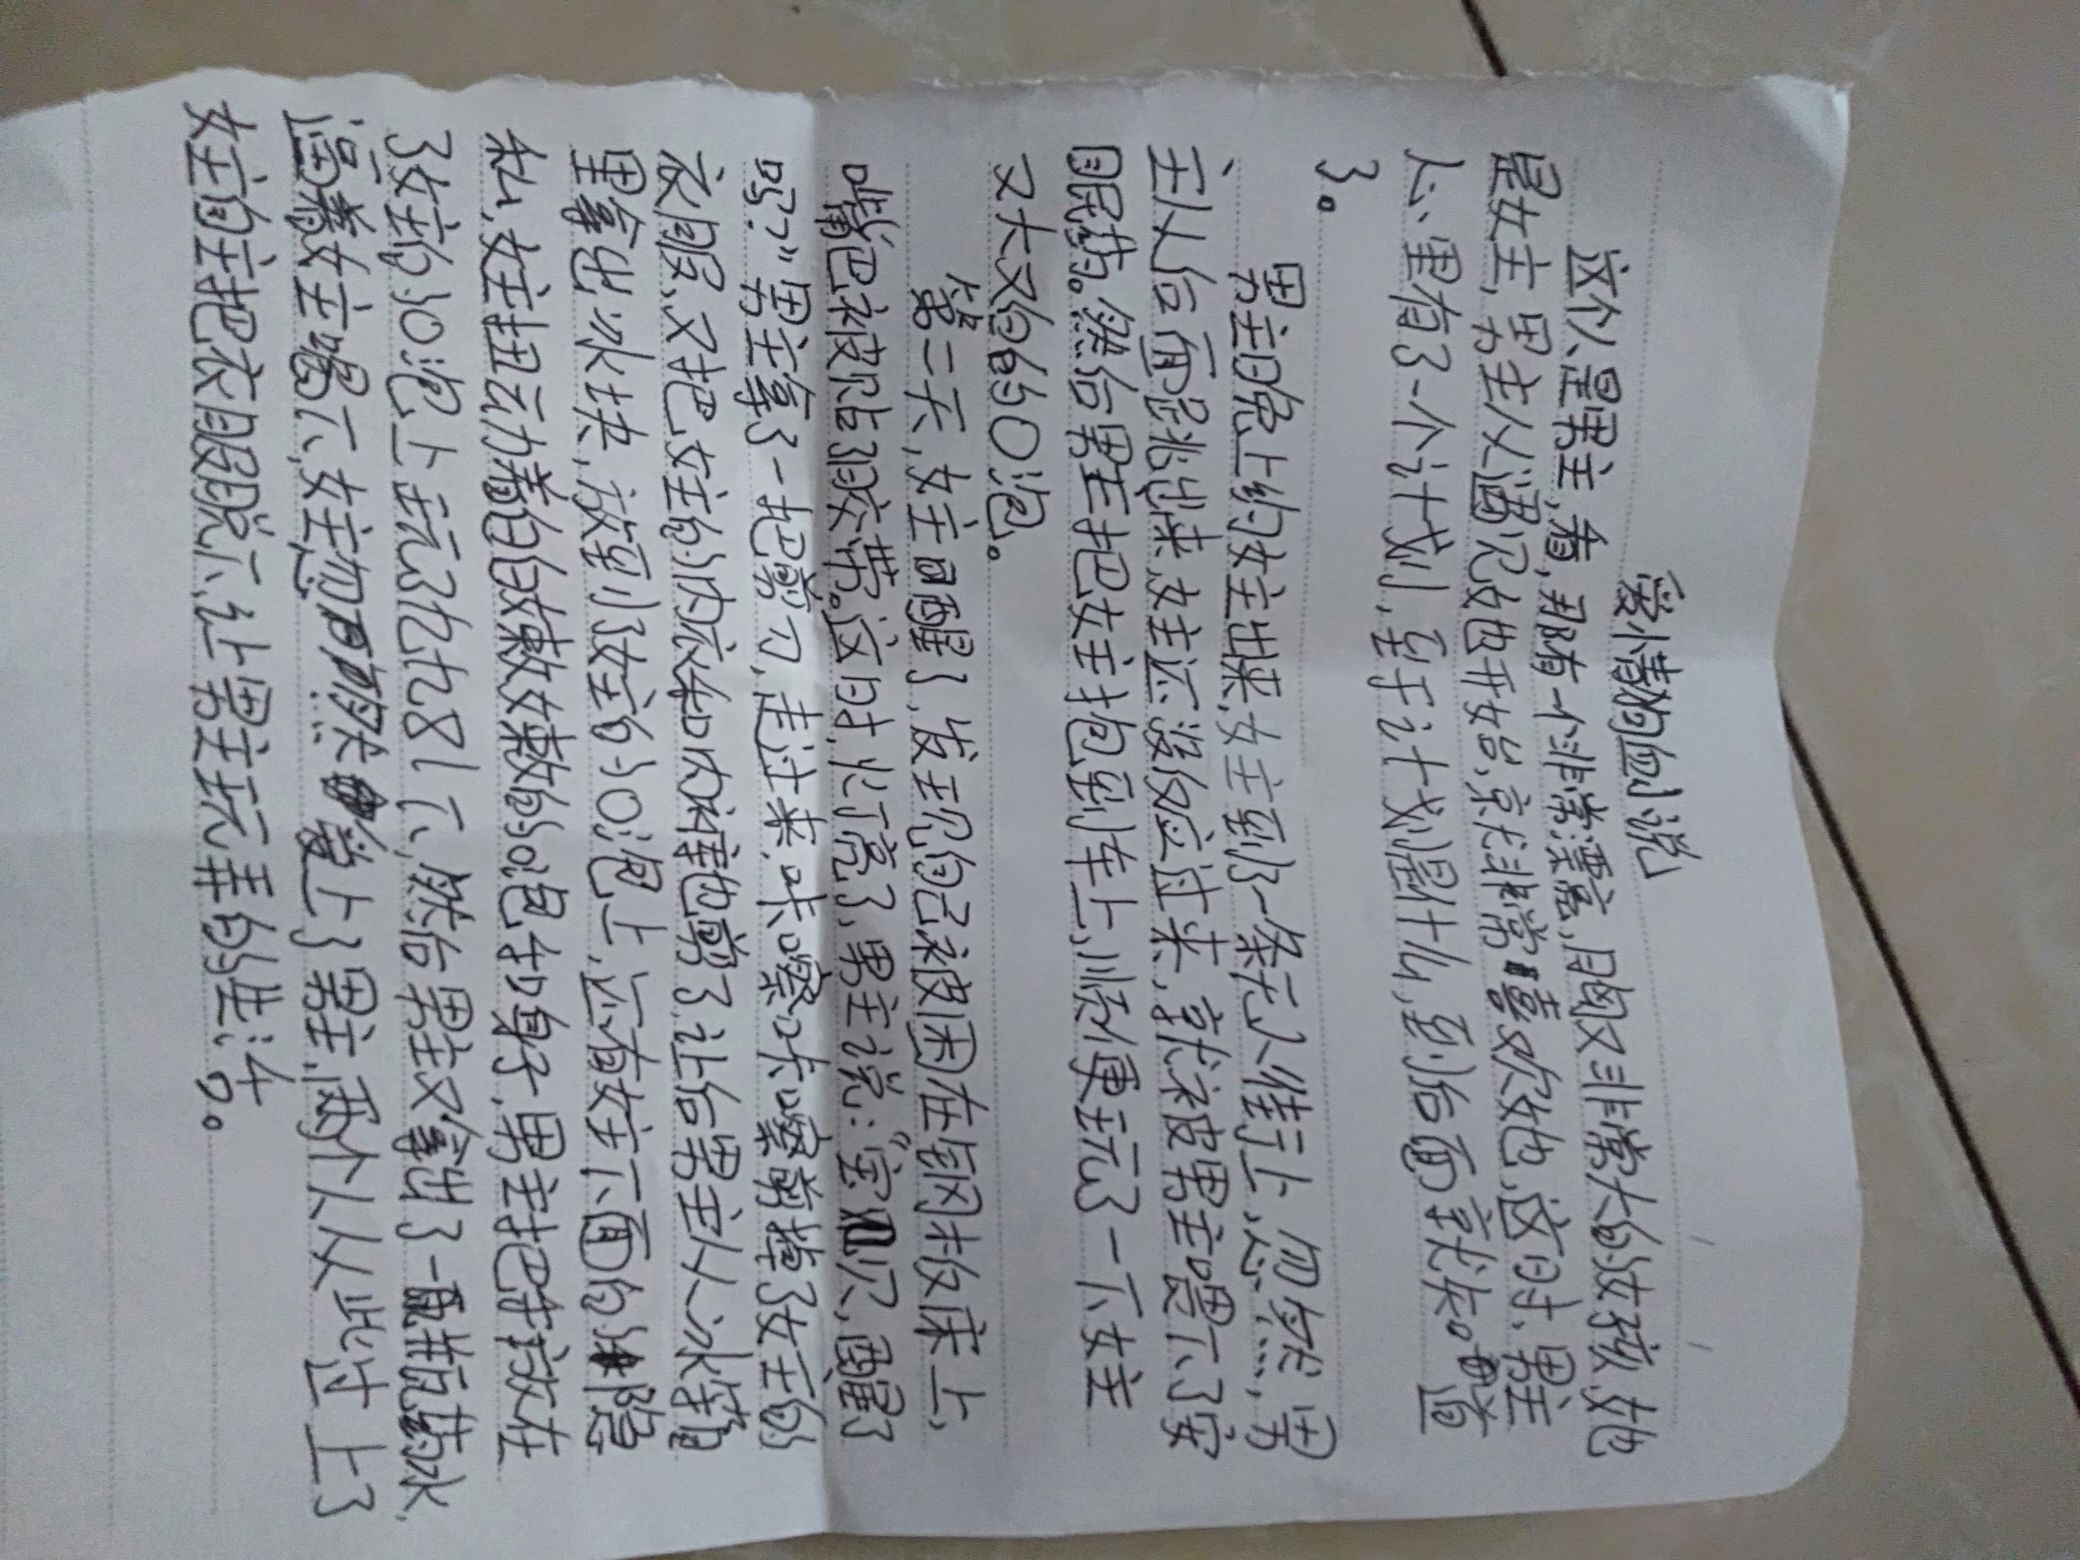 爱情的血小说
这个人是男主,看,那有一个非常漂亮,胸又非常大的女孩,她
是女主,男主从遇见她开始,就非常喜欢她,这时,男主
心里有了一个计划,至于计划是什么,到后面就知道
了。
男主晚上约女主出来,女主到了一条无人街上,忽然……,男
主从后面跳出来,女主还没反应过来,就被男主喂下了安
眠药。然后男主把女主抱到车上,顺便玩了一下女主
又大又的奶泡。
第二天,女主醒了,发现自己被困在钢板床上,
嘴巴被贴了胶带。这时,灯亮了,男主说:“宝贝,醒了
吗?”男主拿了一把剪刀,走过来,咔嚓咔嚓剪掉了女主的
衣服,又把女主的内衣和内裤也剪了,让后男主从冰箱
里拿出冰块,放到了女主的奶泡上,还有女主下面的阴
女主扭动着自己嫩嫩的身子,男主把
了女主的奶泡上玩了九九八十一下,然后男主又拿出了一瓶药水,
逼着女主喝下,女主忽然爱上了男主,两个人从此过上了
女主自主把衣服脱下,让男主玩弄的生活。